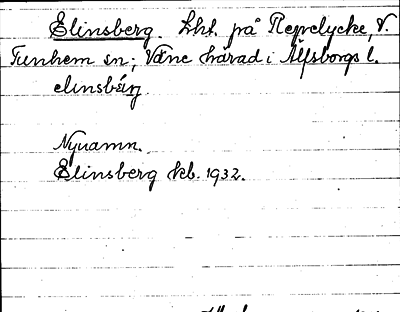 Elinsberg. Lht. på Repelycke, V.
Tunhem sn; Väne härad i Älfsborgs l.
elinsbärj
Nynamn.
Elinsberg kb. 1932.